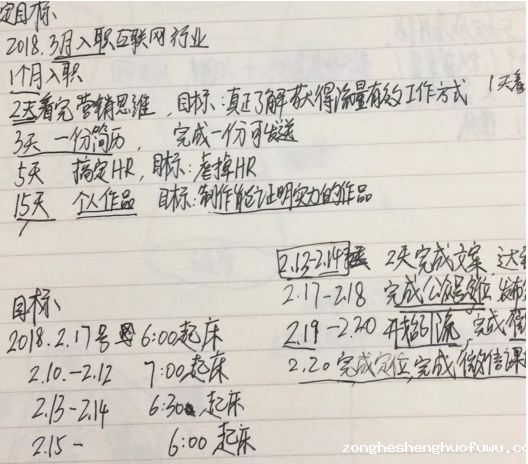 定目标
2018.3月入职互联网行业
1个月入职
2天看完营销思维，目标：真正了解获得流量有效工作方式 1天看
3天 一份简历， 完成一份可发送
5天 搞定HR，目标：虐掉HR
15天 个人作品 目标：制作能证明实力的作品
2.13-2.14 2天完成文案，达
2.17-2.18 完成公众号 发布
2.19-2.20 开始引流，完成
2.20完成定位，完成微信课
目标
2018.2.17号 6:00起床
2.10.-2.12 7:00起床
2.13-2.14 6:30 起床
2.15- 6:00 起床
www.zongheshenghuofuwu.com